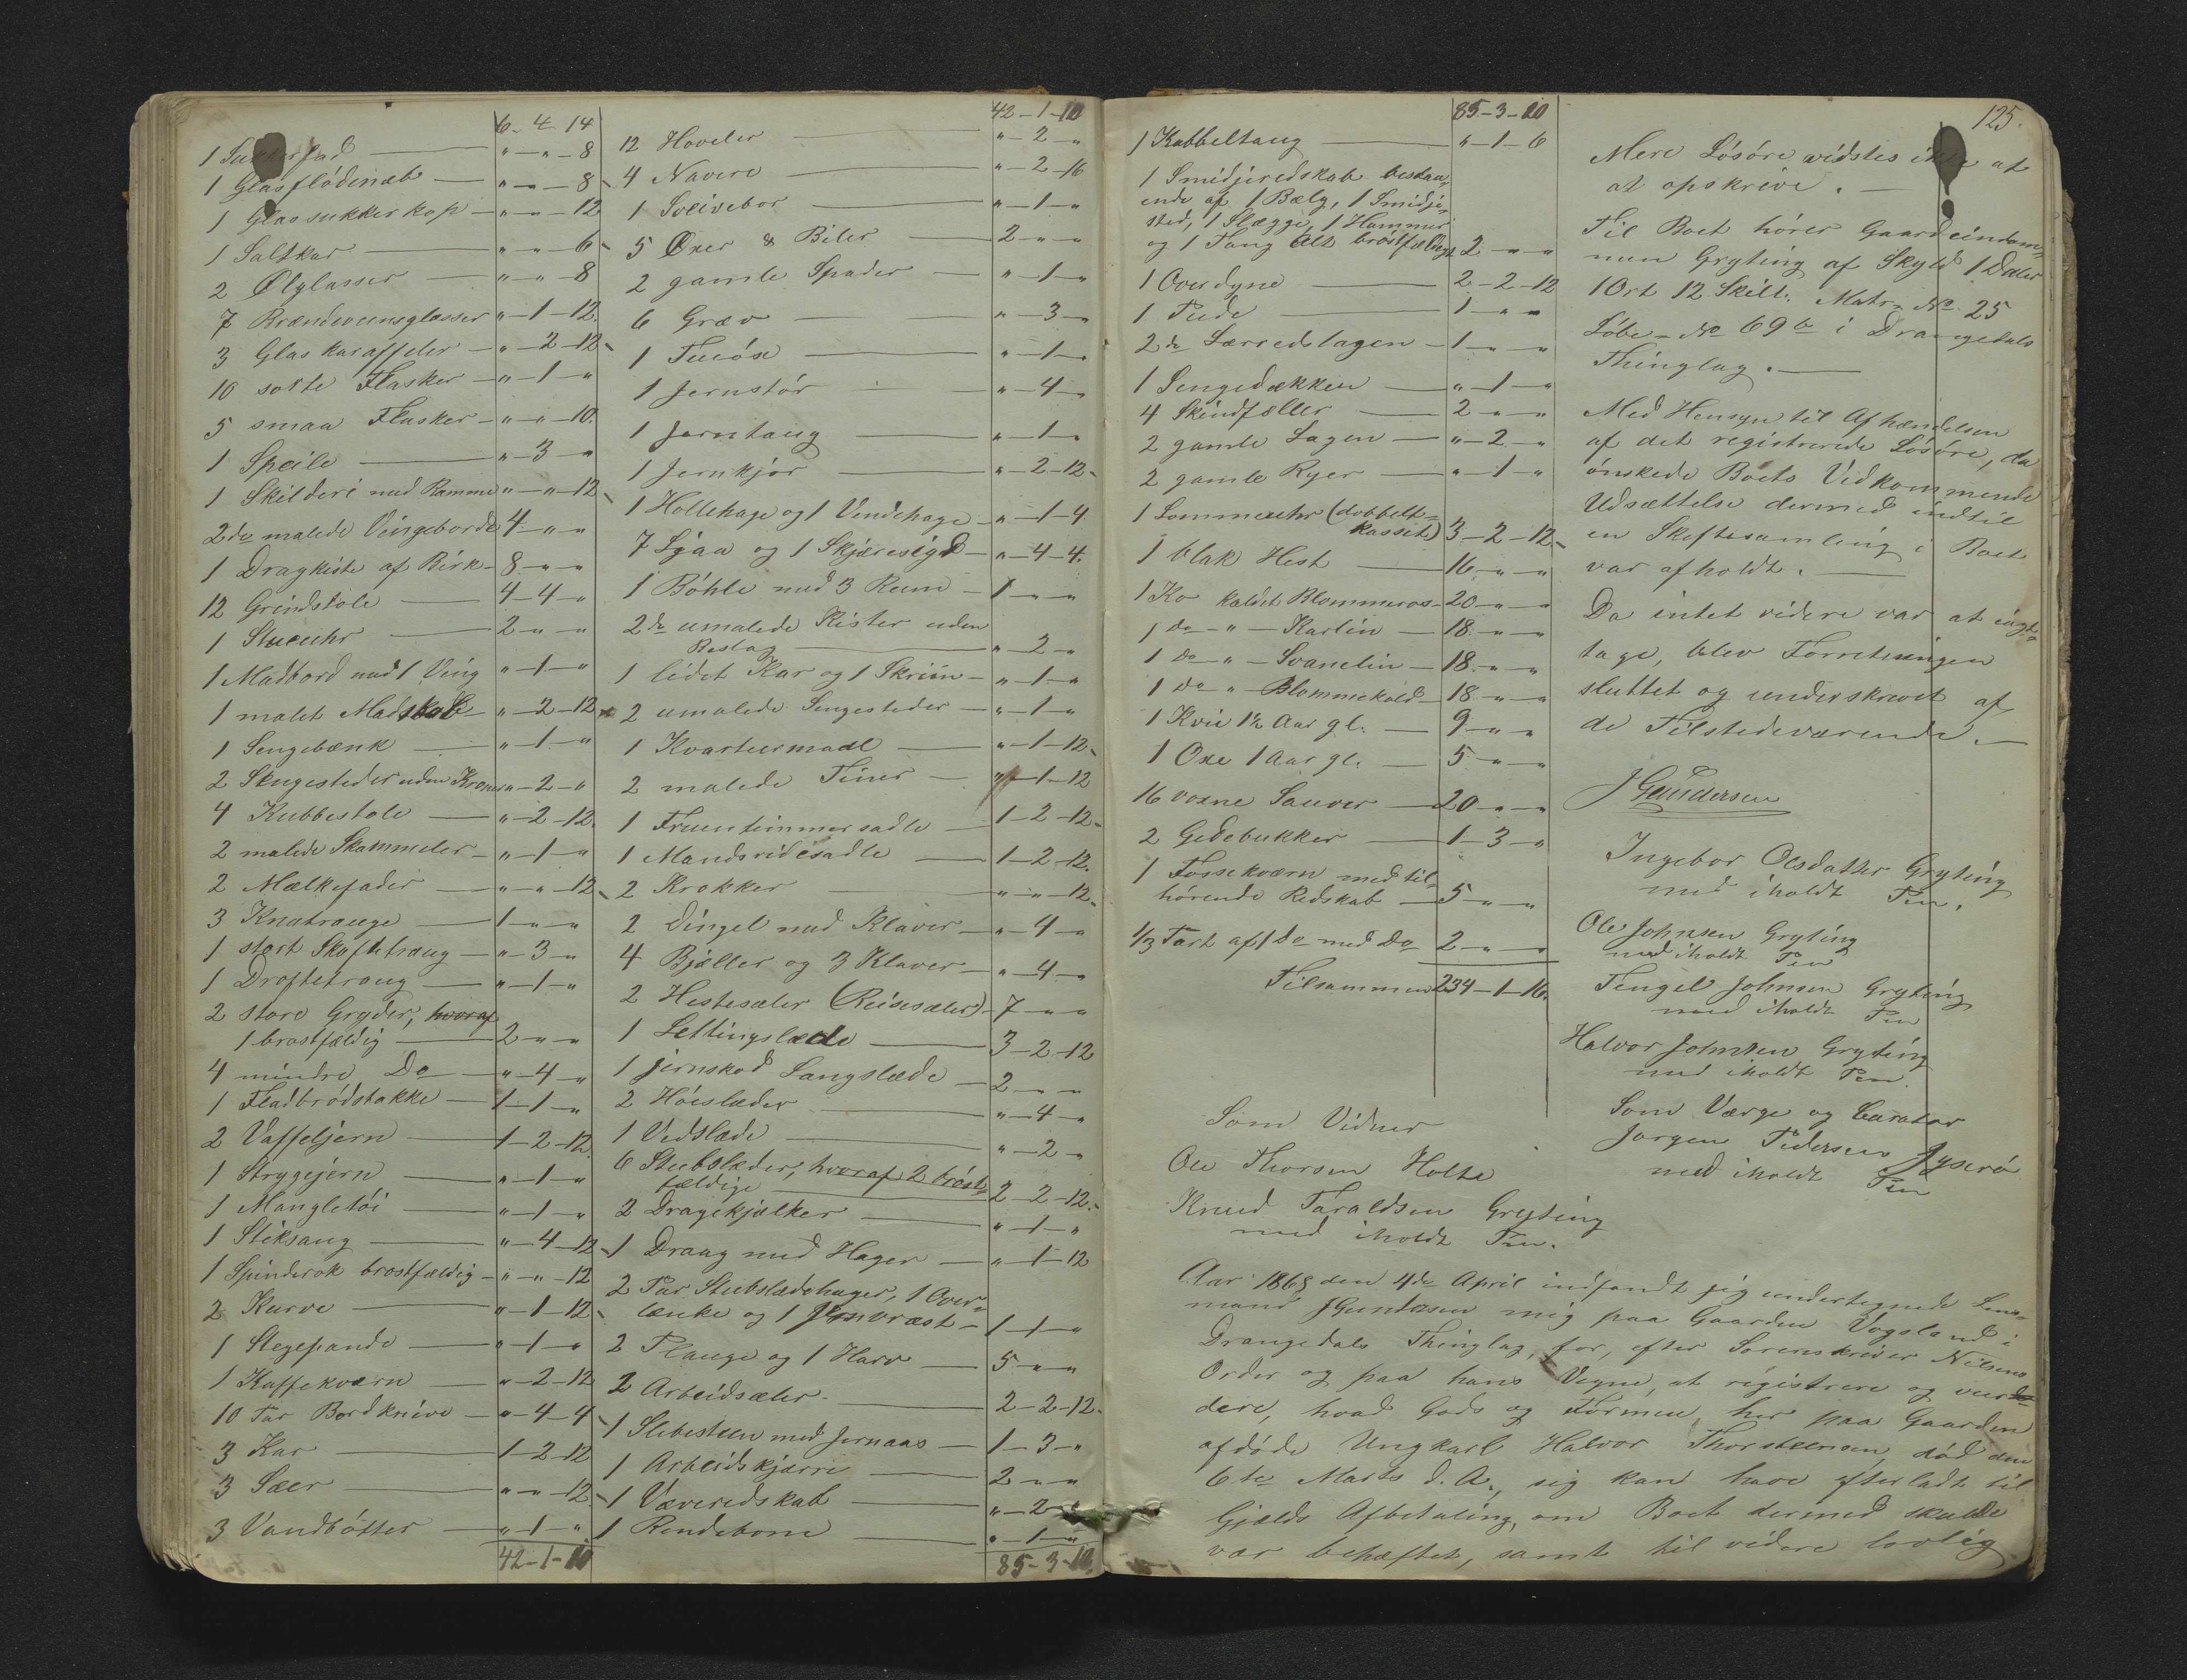 6-4-14
1 Sukkerfad — " - " - 8
1 Glasflödenæb — " - " - 8
1 Glassukkerkop — " - " - 12
1 Saltkar — " - " - 6
2 Ølglasser — " - " - 8
7 Brændeviinsglasser — " - 1 - 12
3 Glaskaraffeler — " - 2 - 12
10 sorte Flasker — " - 1 - "
5 smaa Flasker — " - " - 10
1 Speile — " - 3 - "
1 Skilderi med Ramme " - " - 12
2de malede Vingeborde 4 - " - "
1 Dragkiste af Birk - 8 - " - "
12 Grindstole — 4 - 4 - "
1 Stueuhr — 2 - " - "
1 Madbord med 1 Ving " - 1 - "
1 malet Madskab — " - 2 - 12
1 Sengebænk — " - 1 - "
2 Sengesteder uden Krone " - 2 - "
4 Kubbestole — " - 2 - 12
2 malede Skammeler — " - 1 - "
2 Mælkefader — " - " - 12
3 Knatrauge — 1 - " - "
1 stort Skoftetraug — " - 3 - "
1 Droftetraug — " - 1 - "
2 store Gryder, hvoraf
1 brostfældig — 2 - " - "
4 mindre Do — " - 4 - "
1 Fladbrödstakke — 1 - 1 - "
2 Vaffeljern — 1 - 2 - 12
1 Strygejern — " - 1 - "
1 Mangletöi — " - 1 - "
1 Stiksaug — " - 4 - 12
1 Spinderok brostfældig - " - " - 12
2 Kurve — " - 1 - 12
1 Stegepande — " - 1 - "
1 Kaffekværn — " - 2 - 12
10 Par Bordknive — " - 4 - 4
3 Kar — 1 - 2 - 12
3 Sæer — " - " - 12
3 Vandbötter — " - 1 - "
42-1-10
42-1-10
12 Hoveler — " - 2 - "
4 Navere — " - 2 - 16
1 Sveivebor — " - 1 - "
5 Øxer & Biler — 2 - " - "
2 gamle Spader — " - 1 - "
6 Græv — " - 3 - "
1 Tueöxe — " - 1 - "
1 Jernstör — " - 4 - "
1 Jerntaug — " - 1 - "
1 Jernkjör — " - 2 - 12
1 Hollehage og 1 Vendehage - " - 1 - 4
7 Ljaa og 1 Skjæresigd - " - 4 - 4
1 Böhle med 3 Rum - 1 - " - "
2de umalede Kister uden
Beslag — " - 2 - "
1 lidet Kar og 1 Skriin - " - 1 - "
2 umalede Sengesteder - " - 1 - "
1 Kvarteermaal — " - 1 - 12
2 malede Tiner — " - 1 - 12
1 Fruentimmersadle — 1 - 2 - 12
1 Mandsridesadle — 1 - 2 - 12
2 Krokker — " - " - 12
2 Dingel med Klaver - " - 4 - "
4 Bjæller og 3 Klaver - " - 4 - "
2 Hestesæler (Reisesæler) - 7 - " - "
1 Lettingslæde — 3 - 2 - 12
1 jernskod Langslæde — 2 - " - "
2 Höislæder — " - 4 - "
1 Vedslæde — " - 2 - "
6 Stubslæder, hvoraf 2 bröst=
fældige — 2 - 2 - 12
2 Dragekjælker — " - 1 - "
1 Draug med Hager — " - 1 - 12
2 Par Stubslædehager, 1 Over=
lænke og 1 Jernvræst - 1 - 1 - "
2 Plauge og 1 Harv — 5 - " - "
2 Arbeidsæler — 2 - 2 - 12
1 Slebesteen med Jernaas — 1 - 3 - "
1 Arbeidskjærre — 2 - " - "
1 Væveredskab — " - 2 - "
1 Rendebom — " - 1 - "
85-3-10
85-3-10
1 Kabbeltaug — " - 1 - 6
1 Smidjeredskab bestaa=
ende af 1 Bælg, 1 Smidje=
sted, 1 Slægge, 1 Hammer
og 1 Tang Alt bröstfældigt 2 - " - "
1 Overdyne — 2 - 2 - 12
1 Pude — 1 - " - "
2de Lærredslagen — 1 - " - "
1 Sengedækken — " - 1 - "
4 Skindfæller — 2 - " - "
2 gamle Lagen — " - 2 - "
2 gamle Ryer — " - 1 - "
1 Lommeuhr (dobbelt=
kasset) 3 - 2 - 12
1 blak Hest — 16 - " - "
1 Ko kaldet Blommeros - 20 - " - "
1 do - " - Karlin — 18 - " - "
1 Do - " - Svanelin — 18 - " - "
1 Do - " - Blommekold — 18 - " - "
1 Kvie 1½ Aar gl. — 9 - " - "
1 Oxe 1 Aar gl. — 5 - " - "
16 voxne Sauver — 20 - " - "
2 Gedebukker — 1 - 3 - "
1 Fossekværn med til=
hörende Redskab — 5 - " - "
1/3 Part af 1 Do med Do 2 - " - "
Tilsammen 234-1-16
Som Vidner
Ole Thorsen Holte
Knud Taraldsen Gryting
med iholdt Pen.
125.
Mere Lösöre vidstes ikke at
at opskrive. —
Til Boet hörer Gaardeiendom=
men Gryting af Skyld 1 Daler
1 Ort 12 Skill. Matr. No 25
Löbe-No 69 b i Drangedals
Thinglag. —
Med Hensyn til Afhændelsen
af det registrerede Lösöre, da
önskede Boets Vidkommende
Udsættelse dermed indtil
en Skiftesamling i Boet
var afholdt. —
Da intet videre var at iagt=
tage, blev Forretningen
sluttet og underskrevet af
de Tilstedeværende. —
J Gundersen
Ingebor Olsdatter Gryting
med iholdt Pen.
Ole Johnsen Gryting
med iholdt Pen
Tengel Johnsen Gryting
med iholdt Pen
Halvor Johnsen Gryting
med iholdt Pen.
Som Værge og Curator
Jorgen Pedersen
med iholdt Pen
Aar 1868 den 4de April indfandt jeg undertegnede Lens=
mand J Gundersen mig paa Gaarden Vogsland i
Drangedals Thinglag, for, efter Sorenskriver Nilsens
Order og paa hans Vegne, at registrere og vur
dere, hvad Gods og Formue, her paa Gaarden
afdöde Ungkarl Halvor Thorsteensen, död den
6te Marts d. A., sig kan have efterladt til
Gjælds Afbetaling, om Boet dermed skulde
vær behæftet, samt til videre lovlig